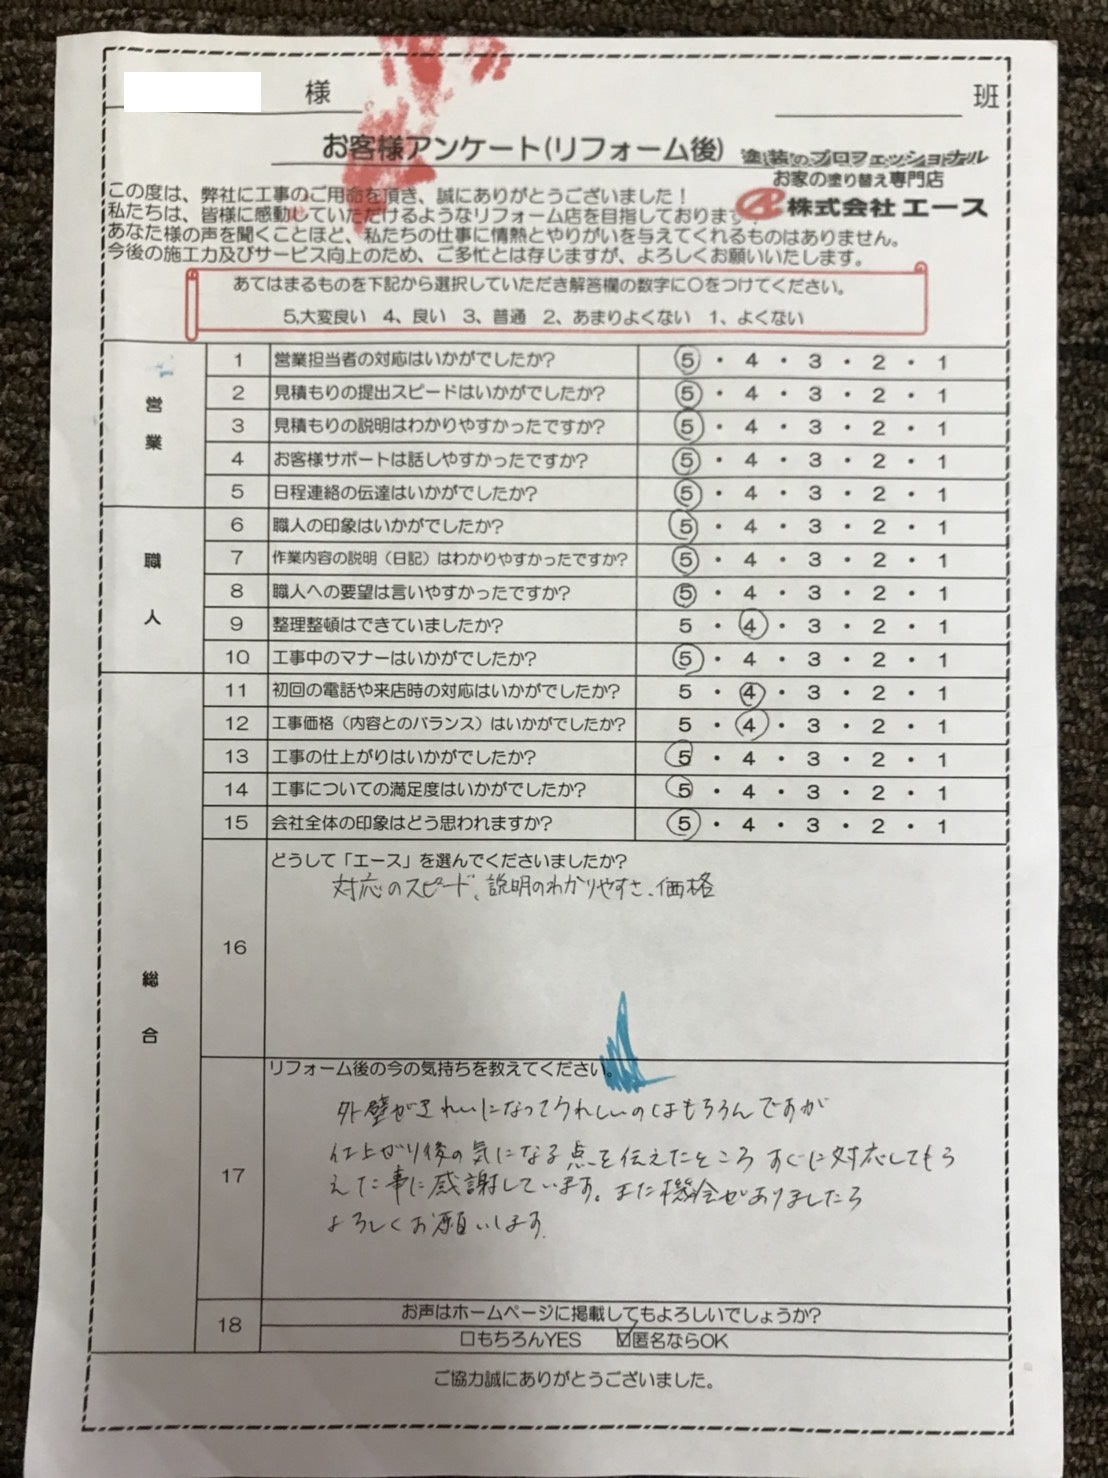 様
班
お客様アンケート(リフォーム後)
塗装のプロフェッショナル
お家の塗り替え専門店
株式会社 エース
この度は、弊社に工事のご用命を頂き、誠にありがとうございました！
私たちは、皆様に感動していただけるようなリフォーム店を目指しております。
あなた様の声を聞くことほど、私たちの仕事に情熱とやりがいを与えてくれるものはありません。
今後の施工力及びサービス向上のため、ご多忙とは存じますが、よろしくお願いいたします。
あてはまるものを下記から選択していただき解答欄の数字に〇をつけてください。
5,大変良い 4、良い 3、普通 2、あまりよくない 1、よくない
営業
1 営業担当者の対応はいかがでしたか? 5・4・3・2・1
2 見積もりの提出スピードはいかがでしたか? 5・4・3・2・1
3 見積もりの説明はわかりやすかったですか? 5・4・3・2・1
4 お客様サポートは話しやすかったですか? 5・4・3・2・1
5 日程連絡の伝達はいかがでしたか? 5・4・3・2・1
職人
6 職人の印象はいかがでしたか? 5・4・3・2・1
7 作業内容の説明（日記）はわかりやすかったですか? 5・4・3・2・1
8 職人への要望は言いやすかったですか? 5・4・3・2・1
9 整理整頓はできていましたか? 5・4・3・2・1
10 工事中のマナーはいかがでしたか? 5・4・3・2・1
総合
11 初回の電話や来店時の対応はいかがでしたか? 5・4・3・2・1
12 工事価格（内容とのバランス）はいかがでしたか? 5・4・3・2・1
13 工事の仕上がりはいかがでしたか? 5・4・3・2・1
14 工事についての満足度はいかがでしたか? 5・4・3・2・1
15 会社全体の印象はどう思われますか? 5・4・3・2・1
16 どうして「エース」を選んでくださいましたか?
対応のスピード、説明のわかりやすさ、価格
17 リフォーム後の今の気持ちを教えてください。
外壁がきれいになってうれしいのはもちろんですが
仕上がり後の気になる点を伝えたところ すぐに対応してもら
えた事に感謝しています。また機会がありましたら
よろしくお願いします。
18 お声はホームページに掲載してもよろしいでしょうか?
□もちろんYES ☑匿名ならOK
ご協力誠にありがとうございました。